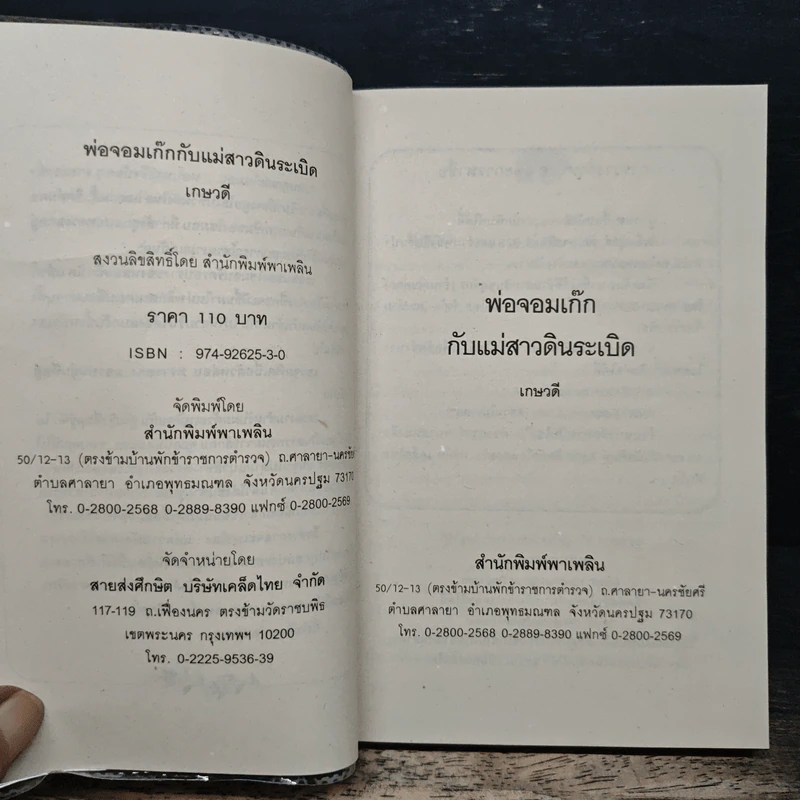 พ่อจอมเก๊กกับแม่สาวดินระเบิด
เกษวดี
สงวนลิขสิทธิ์โดย สำนักพิมพ์พาเพลิน
ราคา 110 บาท
ISBN : 974-92625-3-0
จัดพิมพ์โดย
สำนักพิมพ์พาเพลิน
50/12-13 (ตรงข้ามบ้านพักข้าราชการตำรวจ) ถ.ศาลายา-นครชัย
ตำบลศาลายา อำเภอพุทธมณฑล จังหวัดนครปฐม 73170
โทร. 0-2800-2568 0-2889-8390 แฟกซ์ 0-2800-2569
จัดจำหน่ายโดย
สายส่งศึกษิต บริษัทเคล็ดไทย จำกัด
117-119 ถ.เฟื่องนคร ตรงข้ามวัดราชบพิธ
เขตพระนคร กรุงเทพฯ 10200
โทร. 0-2225-9536-39
พ่อจอมเก๊ก
กับแม่สาวดินระเบิด
เกษวดี
สำนักพิมพ์พาเพลิน
50/12-13 (ตรงข้ามบ้านพักข้าราชการตำรวจ) ถ.ศาลายา-นครชัยศรี
ตำบลศาลายา อำเภอพุทธมณฑล จังหวัดนครปฐม 73170
โทร. 0-2800-2568 0-2889-8390 แฟกซ์ 0-2800-2569